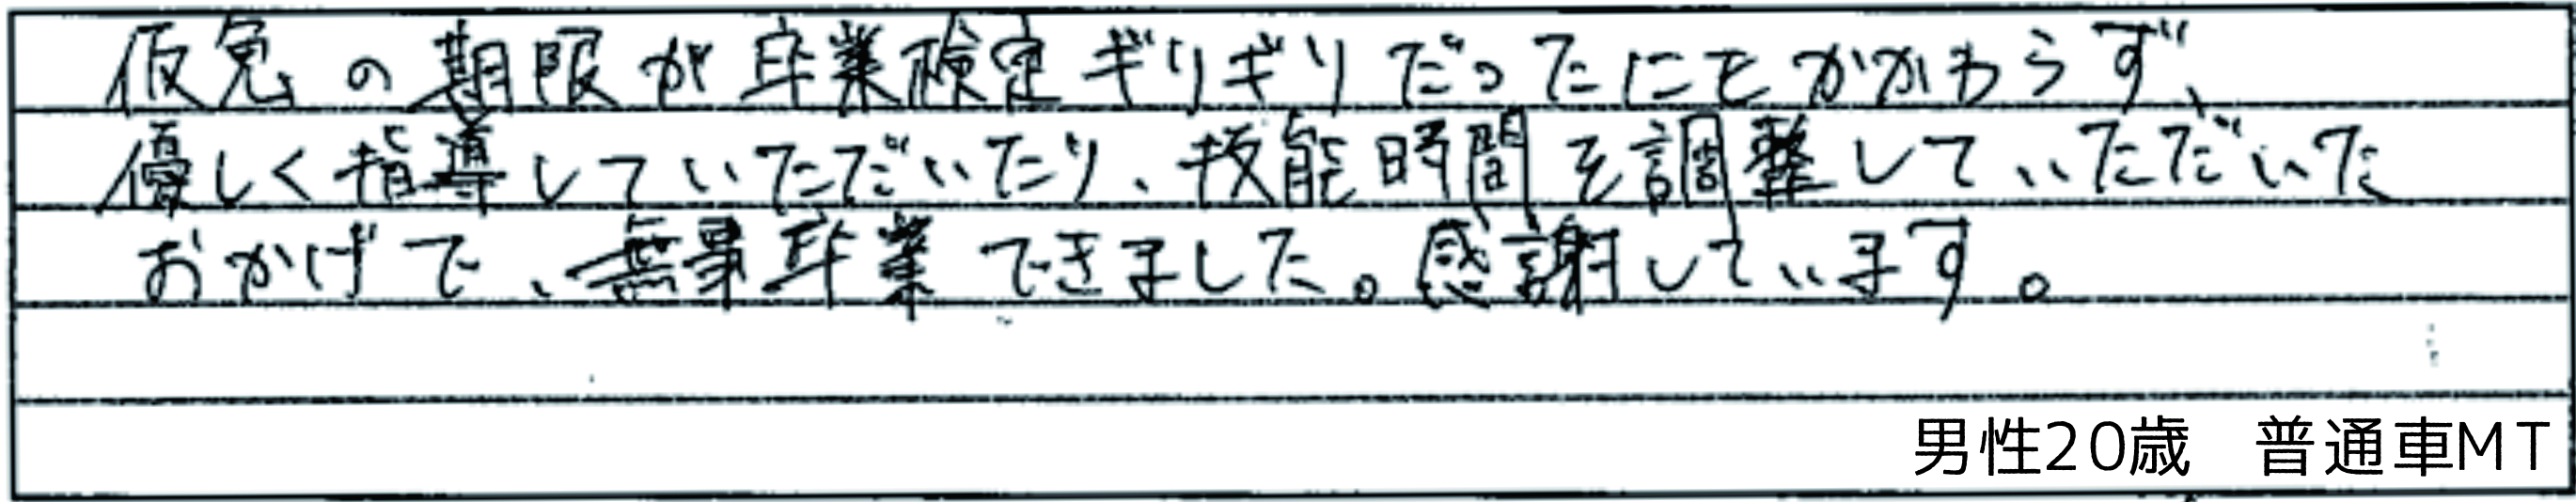 仮免の期限が卒業検定ギリギリだったにもかかわらず、
優しく指導していただいたり、技能時間を調整していただいた
おかげで、無事卒業できました。感謝しています。
男性20歳 普通車MT